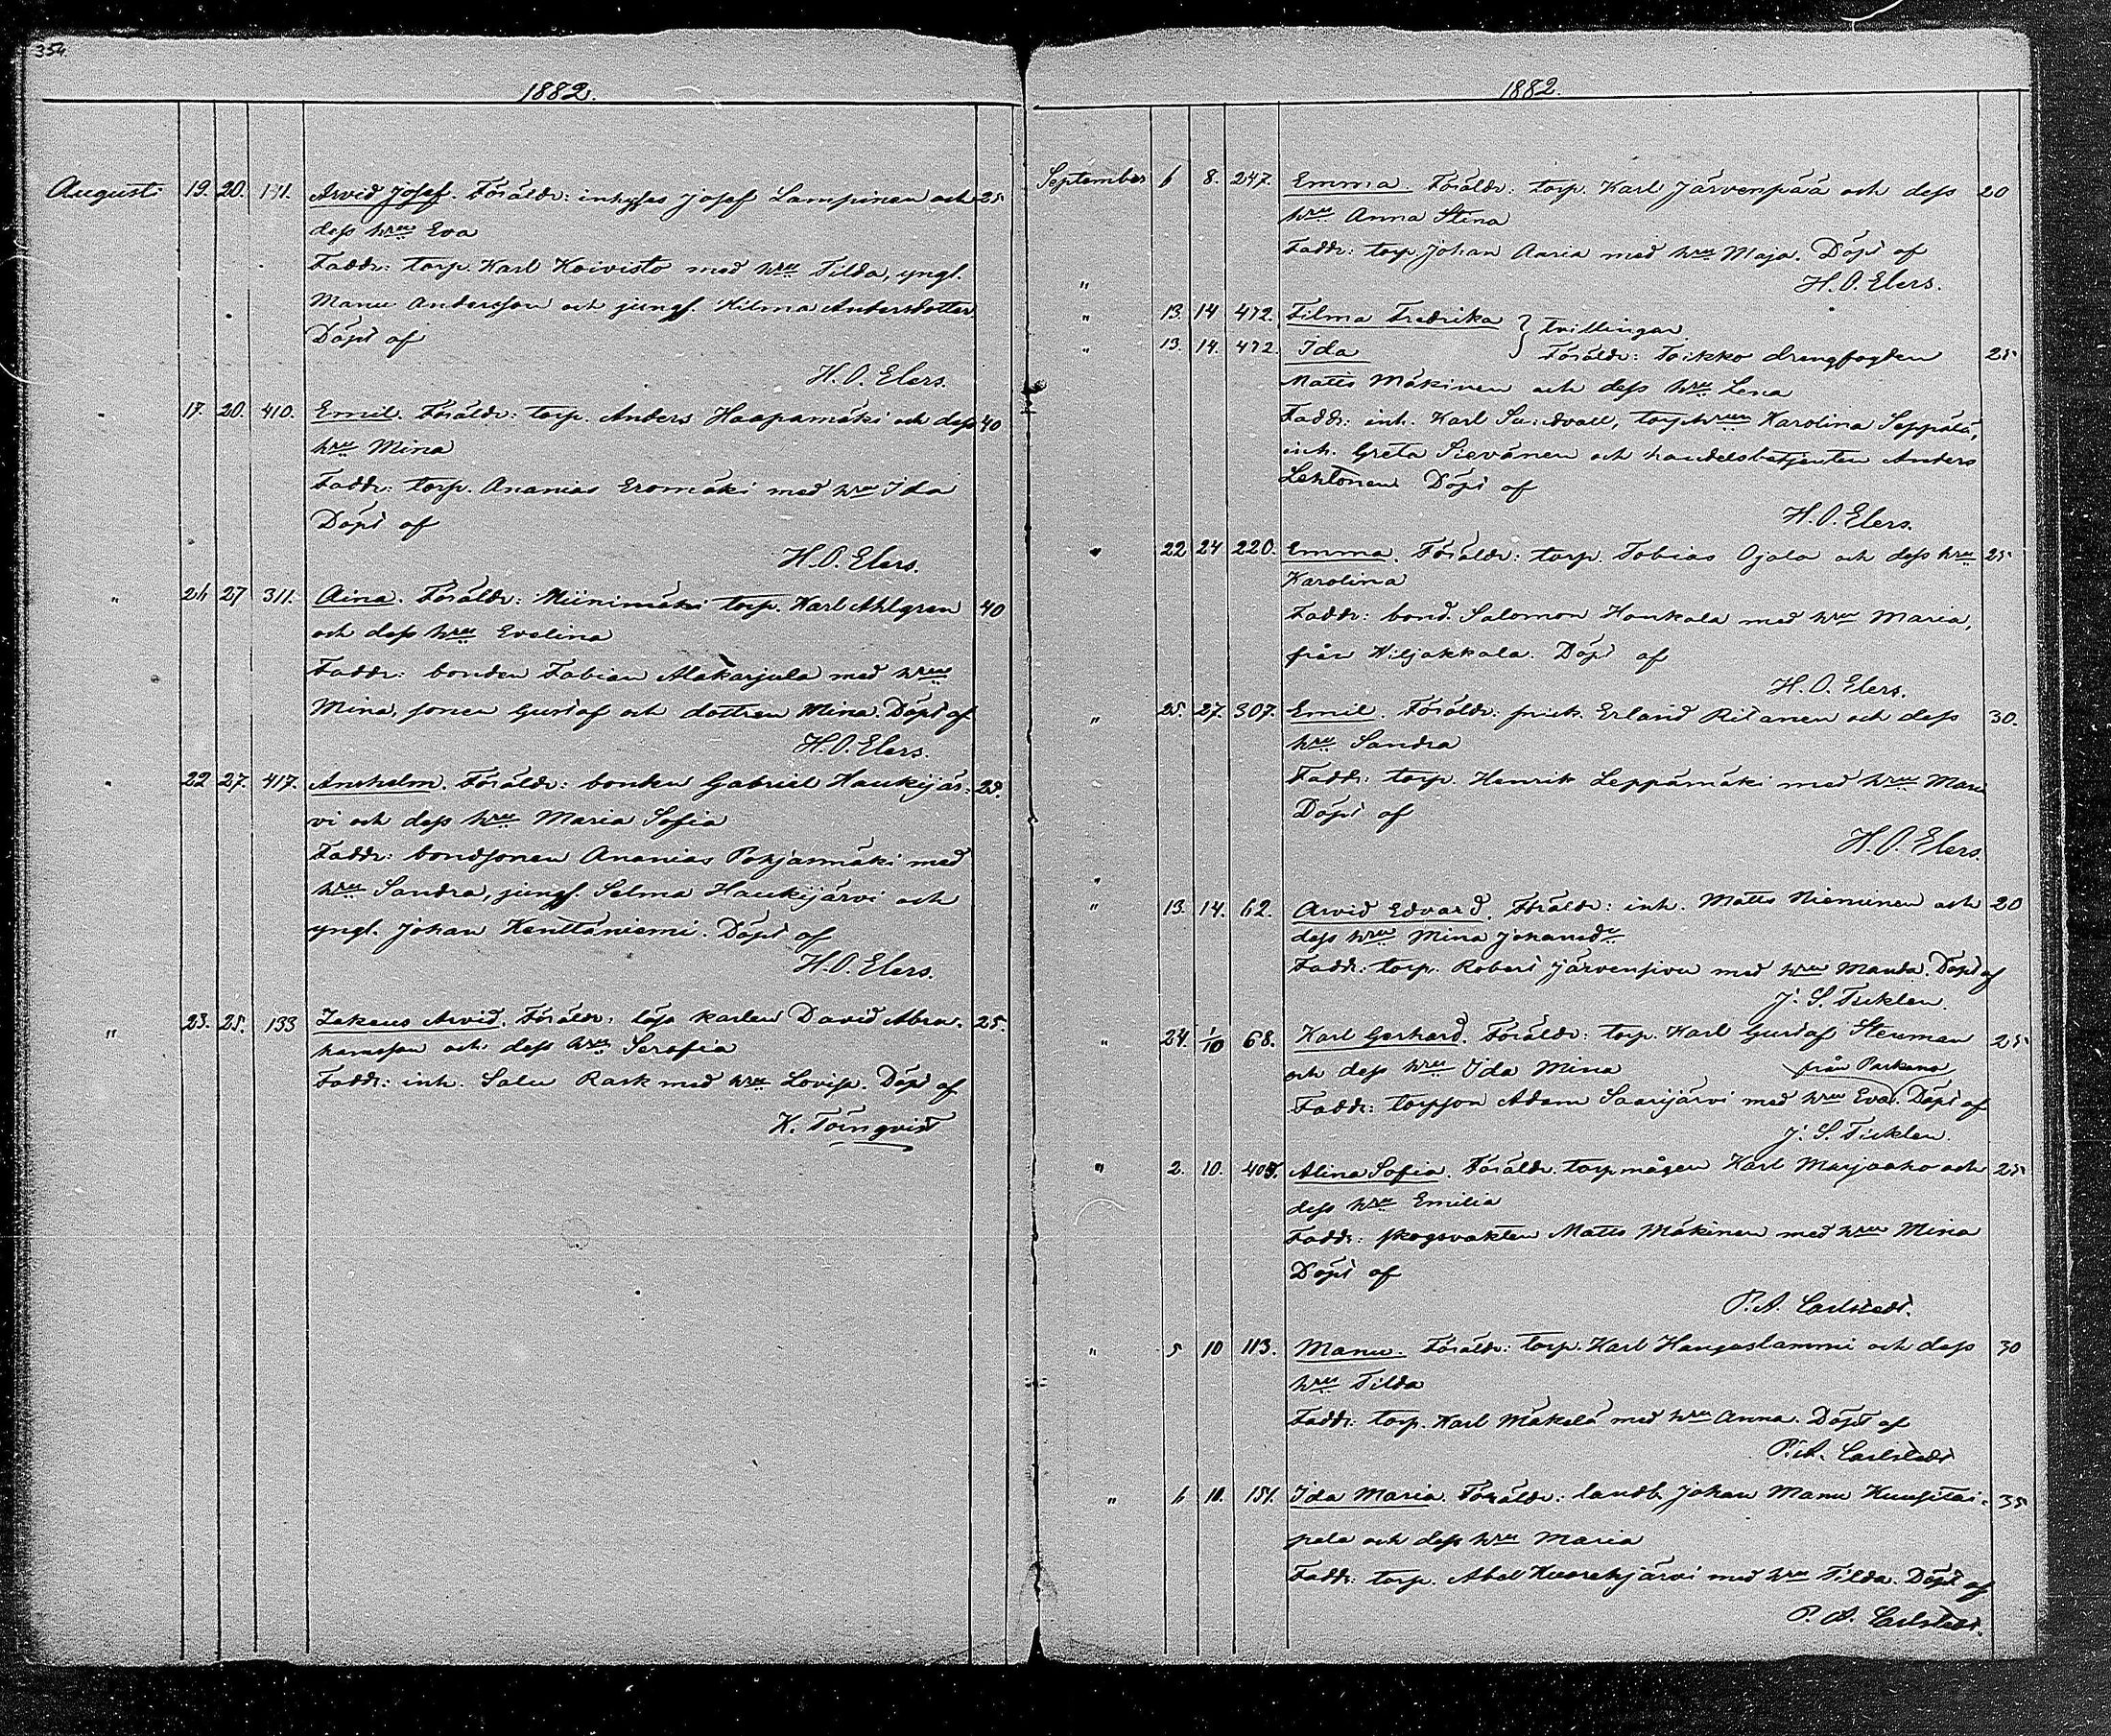 354.
1882.
Augusti 19. 20. 111. Arvid Josef. Föräldr: inhyses Josef Lampinen och 25
dess hru Eva
Faddr: torp. Karl Koivisto med hru Tilda, yngl.
Manu Andersson och jungf. Hilma Andersdotter
Döpt af
H. O. Elers.
" 17. 20. 410. Emil. Föräldr: torp. Anders Haapamäki och dess 40
hru Mina
Faddr: torp. Ananias Eromäki med hru Ida
Döpt af
H. O. Elers.
" 26 27 311. Aina. Föräldr: Niinimäki torp. Karl Ahlgren 40
och dess hru Evelina
Faddr: bonden Fabian Alakarjula med hru
Mina, sonen Gustaf och dottren Mina. Döpt af
H. O. Elers.
" 22 27. 417. Anshelm. Föräldr: bonden Gabriel Haukijär- 25.
vi och dess hru Maria Sofia
Faddr: bondsonen Ananias Pohjanmäki med
hru Sandra, jungf. Selma Haukijärvi och
yngl. Johan Kenttäniemi. Döpt af
H. O. Elers.
" 23. 25. 133 Zakeus Arvid. Föräldr: lösa karlen David Abra- 25.
hamsson och dess hru Serafia
Faddr: inh. Salu Rask med hru Lovisa. Döpt af
K. Törnqvist
1882.
September 6 8. 247. Emma Föräldr: torp. Karl Järvenpää och dess 20
hru Anna Stina
Faddr: torp. Johan Aaria med hru Maja. Döpt af
" H. O. Elers.
" 13. 14 472. Filma Fredrika } tvillingar
" 13. 14. 472. Ida Föräldr: Toikko drengfogden 25
Matts Mäkinen och dess hru Lena
Faddr: inh. Karl Sundvall, torp.hrun Karolina Seppälä,
inh. Greta Sievänen och handelsbetjenten Anders
Lehtonen Döpt af
H. O. Elers.
" 22 24 220. Emma. Föräldr: torp. Tobias Ojala och dess hru 25
Karolina
Faddr: bond. Salomon Haukala med hru Maria,
från Kiljakkala. Döpt af
H. O. Elers.
" 25. 27. 307. Emil. Föräldr: Erland Ritanen och dess 30.
hru Sandra
Faddr: torp. Henrik Leppämäki med hru Maria
Döpt af
H. O. Elers.
" 13. 14. 62. Arvid Edvard. Föräldr: inh. Matts Nieminen och 20
dess hru Mina Johansdr
Faddr: torp. Robert Järvensivu med hru Manda. Döpt af
J. S. Ticklen.
" 24. 1/10 68. Karl Gerhard. Föräldr: torp. Karl Gustaf Stenman 25
och dess hru Ida Mina från Parkano
Faddr: torpson Adam Saarijärvi med hru Eva. Döpt af
J. S. Ticklen.
" 2. 10. Alina Sofia. Föräldr. torpmågen Karl Marjaaho och 25
dess hru Emilia
Faddr: skogsvakten Matts Mäkinen med hru Mina
Döpt af
P. A. Carlstedt.
" 5 10 113. Manu. Föräldr: torp. Karl Hangaslammi och dess 30
hru Tilda
Faddr: torp. Karl Mäkelä med hru Anna. Döpt af
P. A. Carlstedt
" 6 10. 151. Ida Maria. Föräldr: landb. Johan Manu Kuusitai- 35
pale och dess hru Maria
Faddr: torp. Abel Kuorehjärvi med hru Tilda. Döpt af
P. A. Carlstedt.